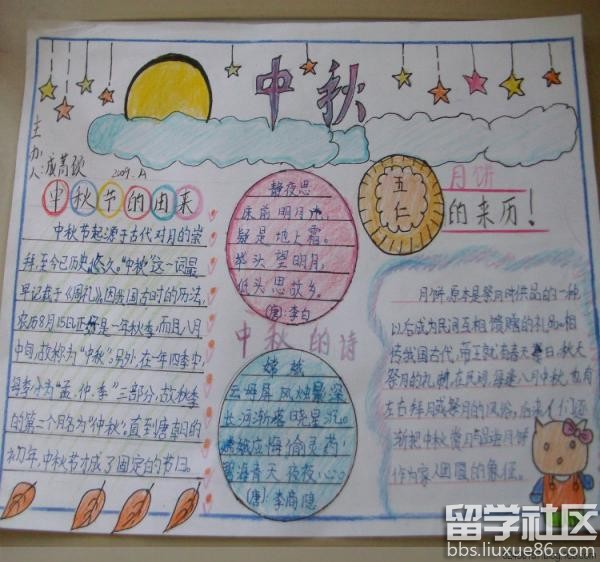 中秋
主办人:成蒿硕
2009.
中秋节的由来
中秋节起源于古代对月的崇
拜,至今已历史悠久。"中秋"这一词最
早记载于《周礼》,因我国古时的历法,
农历8月15日正好是一年秋季,而且八月
中旬,故称为"中秋"。另外,在一年四季中,
每季分为"孟、仲、季"三部分,故秋季
的第二个月名为"仲秋",直到唐朝的
初年,中秋节才成了固定的节日。
静夜思
床前明月光
疑是地上霜。
举头望明月,
低头思故乡。
(唐):李白
中秋的诗
嫦娥
云母屏风烛影深
长河渐落晓星沉。
嫦娥应悔偷灵药,
碧海青天夜夜心。
(唐):李商隐
五仁
月饼
的来历!
月饼,原本是祭月时供品的一种
以后成为民间互相馈赠的礼品。相
传我国古代,帝王就有春天祭日,秋天
祭月的礼制,在民间,每逢八月中秋,也有
左右拜月或祭月的风俗,后来人们逐
渐把中秋赏月与品尝月饼
作为家人团圆的象征。
留学社区
bbs.liuxue86.com